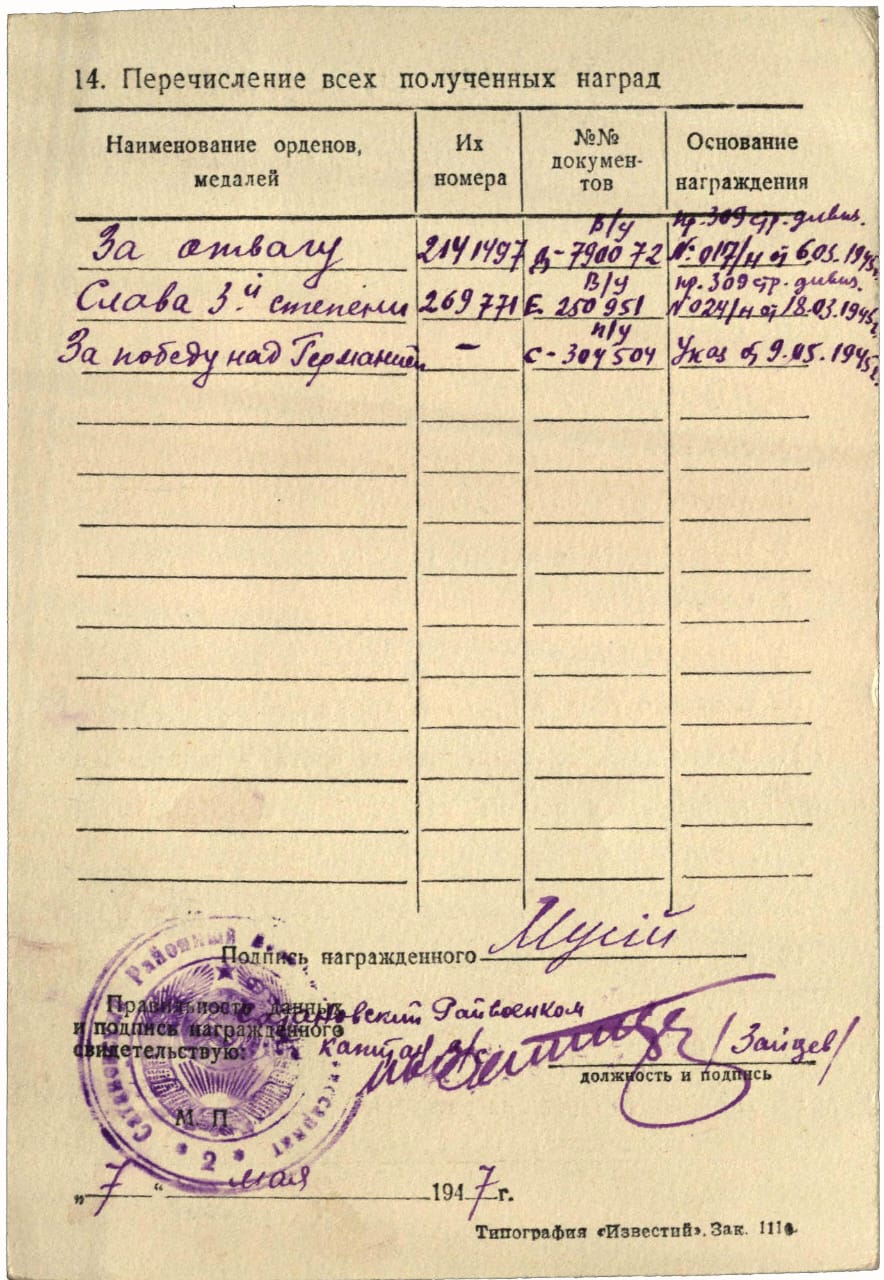 14. Перечисление всех полученных наград
Наименование орденов, медалей
Их номера
№№ документов
Основание награждения
За отвагу 2141497 В/у Д-790072 пр. 309 стр. дивиз. № 017/н от 6.03.1945г.
Слава 3й степени 269771 В/у Е. 250951 пр. 309 стр. дивиз. № 024/н от 18.03.1945г.
За победу над Германией - п/у С-304504 Указ от 9.05.1945г.
Подпись награжденного Мусій
Правильность данных
и подпись награжденного
свидетельствую:
Райвоенком
капитан
/Зайцев/
должность и подпись
Районный
М. П.
2
„7“ мая 1947г.
Типография «Известий». Зак. 111